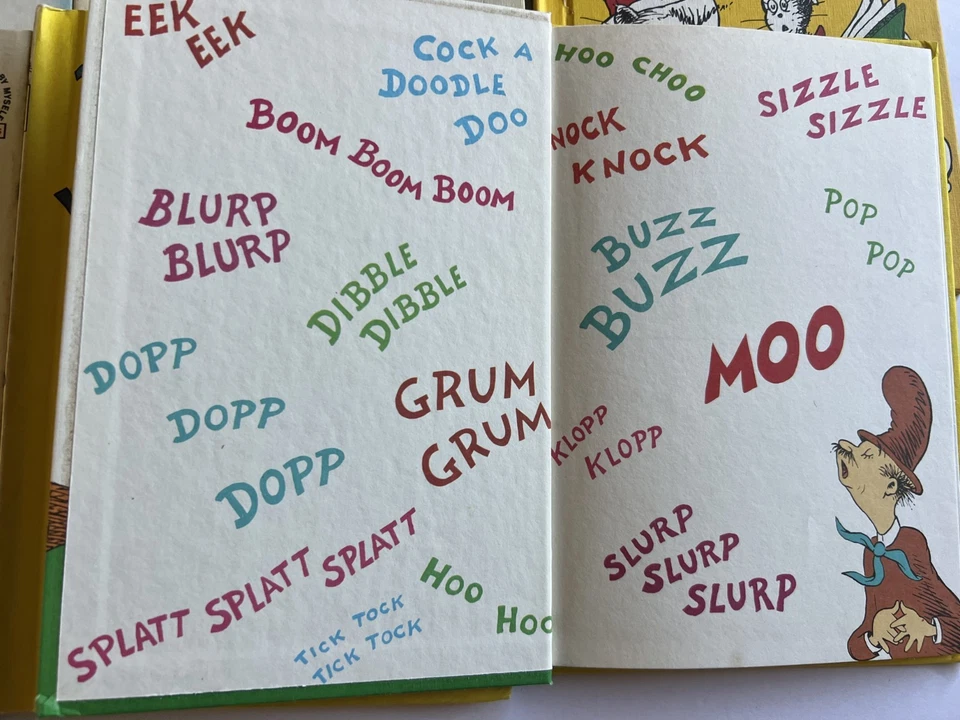 EEK
EEK
COCK A
DOODLE
DOO
BOOM BOOM BOOM
BLURP
BLURP
DIBBLE
DIBBLE
DOPP
DOPP
DOPP
GRUM
GRUM
SPLATT SPLATT SPLATT
TICK TOCK
TICK TOCK
HOO
HOO
HOO CHOO
SIZZLE
SIZZLE
NOCK
KNOCK
POP
POP
BUZZ
BUZZ
MOO
KLOPP
KLOPP
SLURP
SLURP
SLURP
BY MYSELF